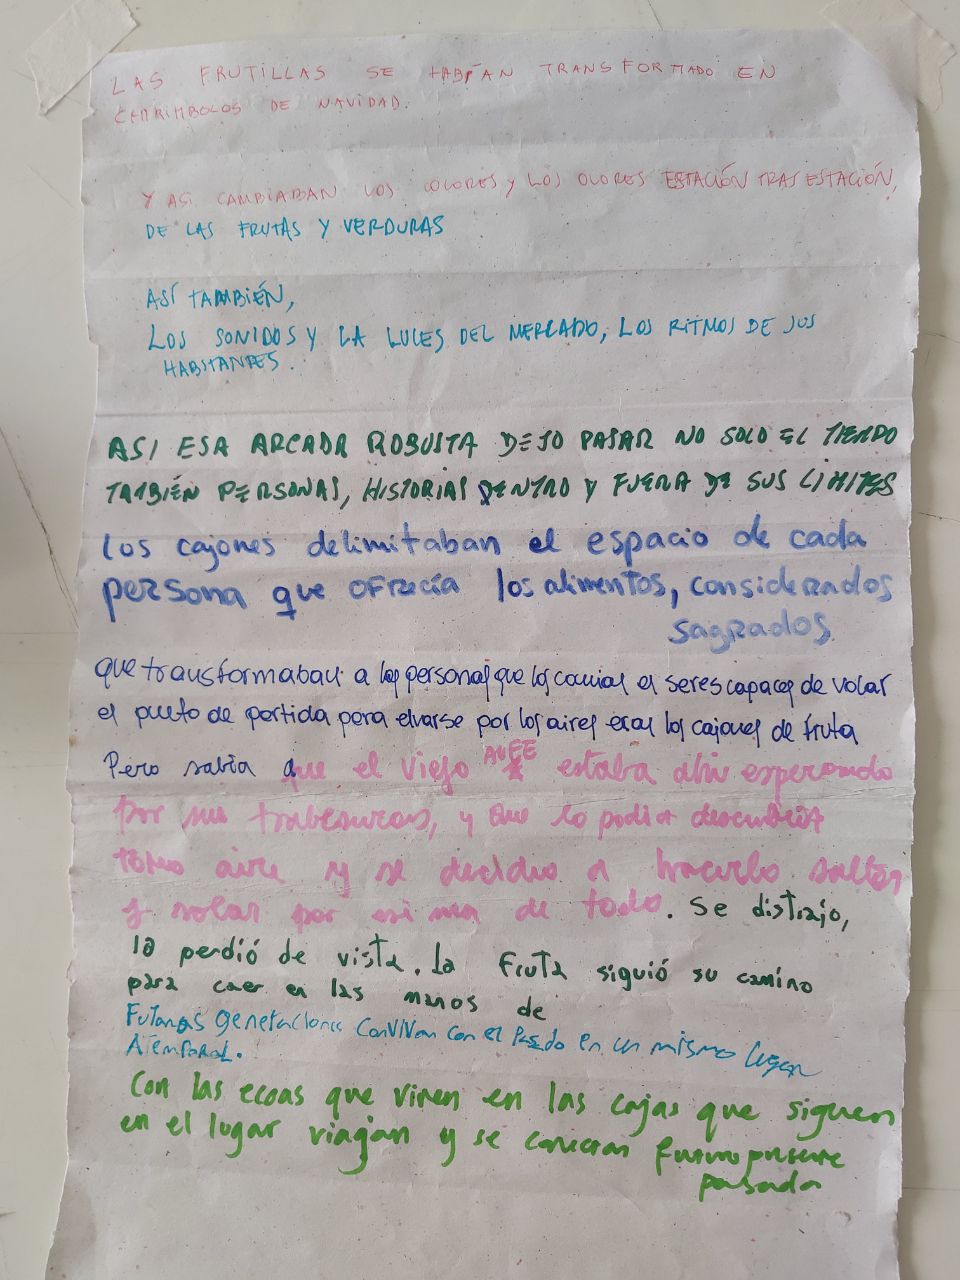 LAS FRUTILLAS SE HABÍAN TRANSFORMADO EN
CENTIMBOLOS DE NAVIDAD.
Y ASI CAMBIABAN LOS COLORES Y LOS OLORES ESTACIÓN TRAS ESTACIÓN,
DE LAS FRUTAS Y VERDURAS
ASÍ TAMBIÉN,
LOS SONIDOS Y LA LUCES DEL MERCADO, LOS RITMOS DE SUS
HABITANTES.
ASI ESA ARCADA ROBUSTA DEJO PASAR NO SOLO EL TIEMPO
TAMBIÉN PERSONAS, HISTORIAS DENTRO Y FUERA DE SUS LIMITES
Los cajones delimitaban el espacio de cada
persona que ofrecía los alimentos, considerados
sagrados
que transformaban a las personas que los comian en seres capaces de volar
el punto de partida para elvarse por los aires eran los cajones de fruta
Pero sabia que el viejo AVEE estaba ahi esperando
por sus trabesuras, y que lo podia descubrir
tomo aire y se decidio a hacerlo saltar
y volar por encima de todo. Se distrajo,
la perdió de vista. La fruta siguió su camino
para caer en las manos de
Futuras generaciones conviven con el pasado en un mismo lugar
Atemporal.
Con las ecoas que viven en las cajas que siguen
en el lugar viajan y se conectan futuro presente
pasado